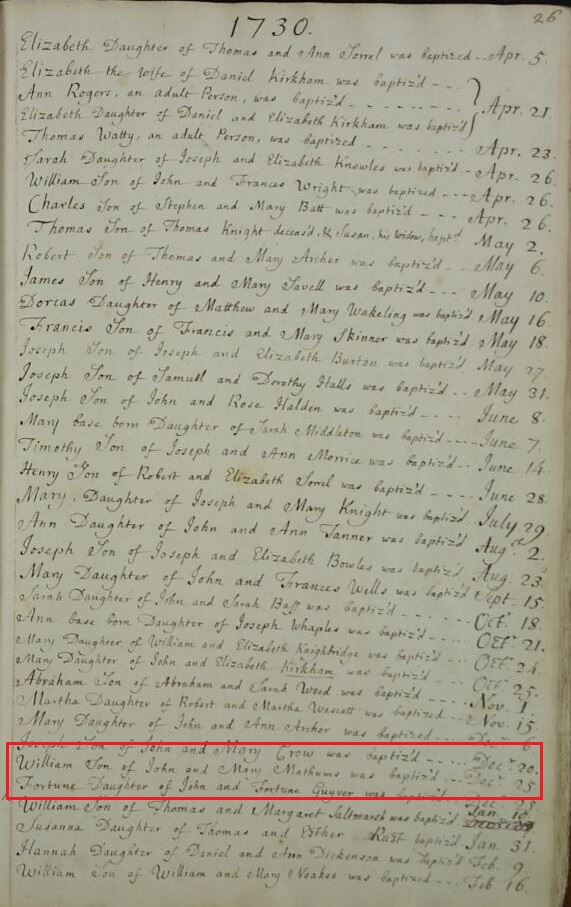 1730.
26
Elizabeth Daughter of Thomas and Ann Sorrel was baptized -- Apr. 5.
Elizabeth the Wife of Daniel Kirkham was baptiz'd ---
Ann Rogers, an adult Person, was baptiz'd - - - - - - - - Apr. 21
Elizabeth Daughter of Daniel and Elizabeth Kirkham was baptiz'd
Thomas Watty, an adult Person, was baptized - - - - - - - Apr. 23.
Sarah Daughter of Joseph and Elizabeth Knowles was baptiz'd - Apr. 26.
William Son of John and Frances Wright was baptized --- Apr. 26.
Charles Son of Stephen and Mary Batt was baptiz'd - - - Apr. 26.
Thomas Son of Thomas Knight deceas'd, & Susan, his Widow, bapt.d May 2.
Robert Son of Thomas and Mary Archer was baptiz'd -- May 6.
James Son of Henry and Mary Savell was baptiz'd --- May 10.
Dorcas Daughter of Matthew and Mary Wakeling was baptiz'd May 16
Francis Son of Francis and Mary Skinner was baptiz'd May 18
Joseph Son of Joseph and Elizabeth Burton was baptiz'd May 27.
Joseph Son of Samuel and Dorothy Halls was baptiz'd -- May 31.
Joseph Son of John and Rose Halden was baptiz'd ---- June 8.
Mary base born Daughter of Sarah Middleton was baptiz'd ---- June 7.
Timothy Son of Joseph and Ann Morrice was baptiz'd -- June 14
Henry Son of Robert and Elizabeth Sorrel was baptiz'd ---- June 28.
Mary, Daughter of Joseph and Mary Knight was baptiz'd July 29.
Ann Daughter of John and Ann Tanner was baptiz'd Aug.st 2.
Joseph Son of Joseph and Elizabeth Bowles was baptiz'd Aug. 23
Mary Daughter of John and Frances Wells was baptiz'd Sept. 15.
Sarah Daughter of John and Sarah Bass was baptiz'd ------ Oct.r 18.
Ann base born Daughter of Joseph Whaples was baptiz'd --- Oct.r 21.
Mary Daughter of William and Elizabeth Knighbridge was baptiz'd --- Oct.r 24.
Mary Daughter of John and Elizabeth Kirkham was baptiz'd --- Oct.r 25.
Abraham Son of Abraham and Sarah Wood was baptiz'd --- Nov. 1.
Martha Daughter of Robert and Martha Wascatt was baptiz'd -- Nov. 15.
Mary Daughter of John and Ann Archer was baptized --- Dec.r 6.
Joseph Son of John and Mary Crow was baptiz'd ---- Dec.r 20.
William Son of John and Mary Mathums was baptiz'd -- Dec.r 25
Fortune Daughter of John and Fortune Guyver was baptiz'd --- Dec.r 25
William Son of Thomas and Margaret Saltmarsh was baptiz'd Jan. 10.
Susanna Daughter of Thomas and Esther Rust baptiz'd Jan. 31.
Hannah Daughter of Daniel and Ann Dickenson was baptiz'd Feb. 9
William Son of William and Mary Noakes was baptized --- Feb. 16.